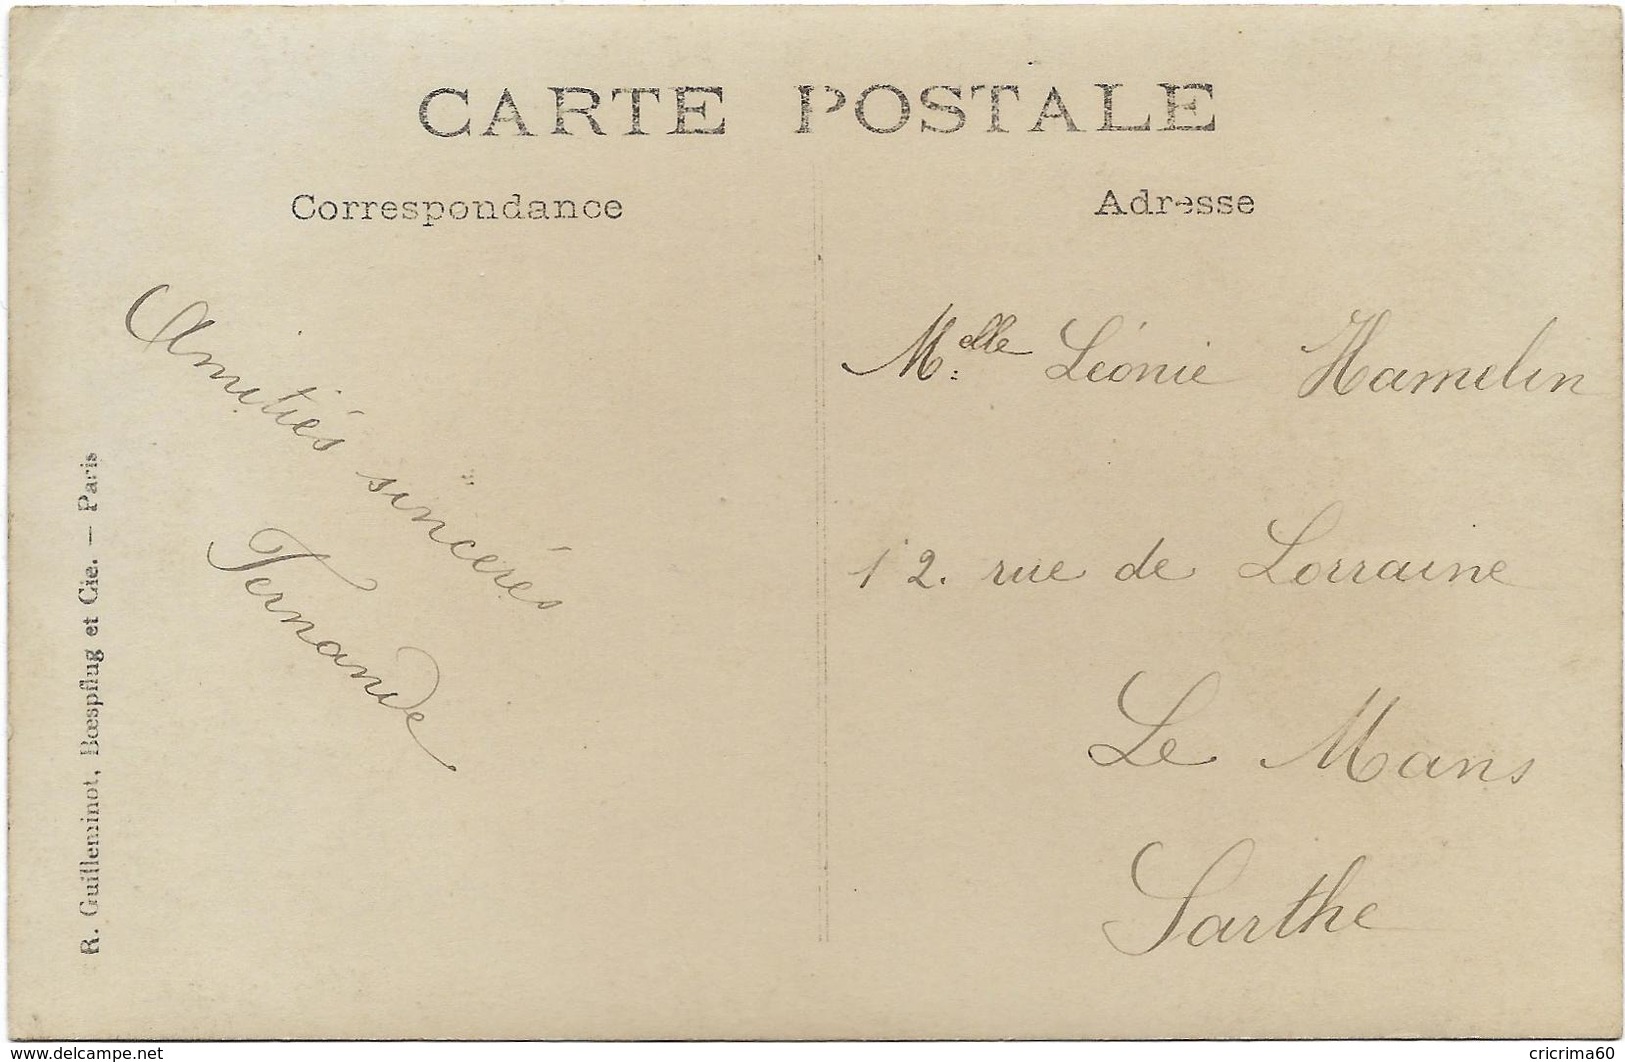 CARTE POSTALE
Correspondance
Adresse
Amitiés sincerés
Fernande
M.elle Léonie Hamelin
12. rue de Lorraine
Le Mans
Sarthe
R. Guilleminot, Bœspflug et Cie. — Paris
www.delcampe.net
cricrima60